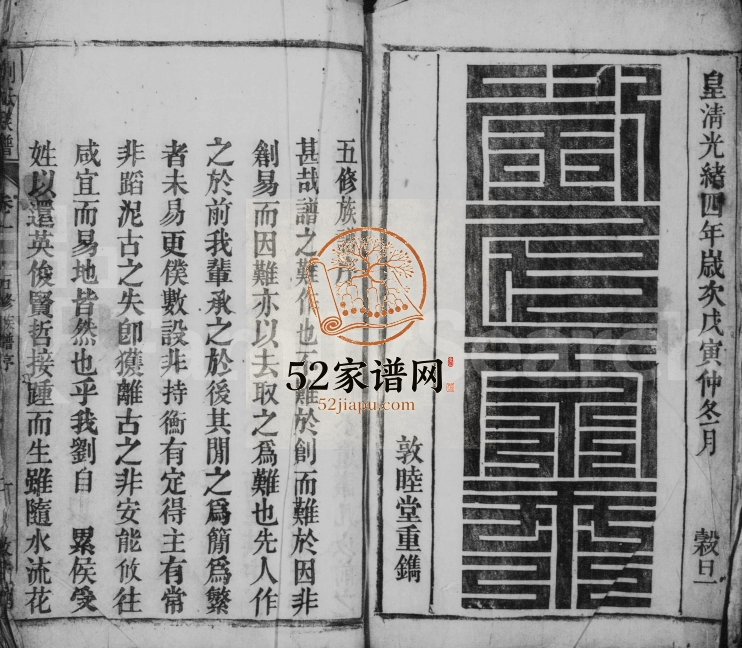 皇清光緒四年歲次戊寅仲冬月 穀旦
敦睦堂重鐫
五修族譜序
甚哉譜之難作也不難於創而難於因非
創易而因難亦以去取之為難也先人作
之於前我輩承之於後其間之為簡為繁
者未易更僕數設非持衡有定得主有常
非蹈泥古之失卽獲離古之非安能攸往
咸宜而易地皆然也乎我劉自 累侯受
姓以還英俊賢哲接踵而生雖隨水流花
52家谱网
52jiapu.com